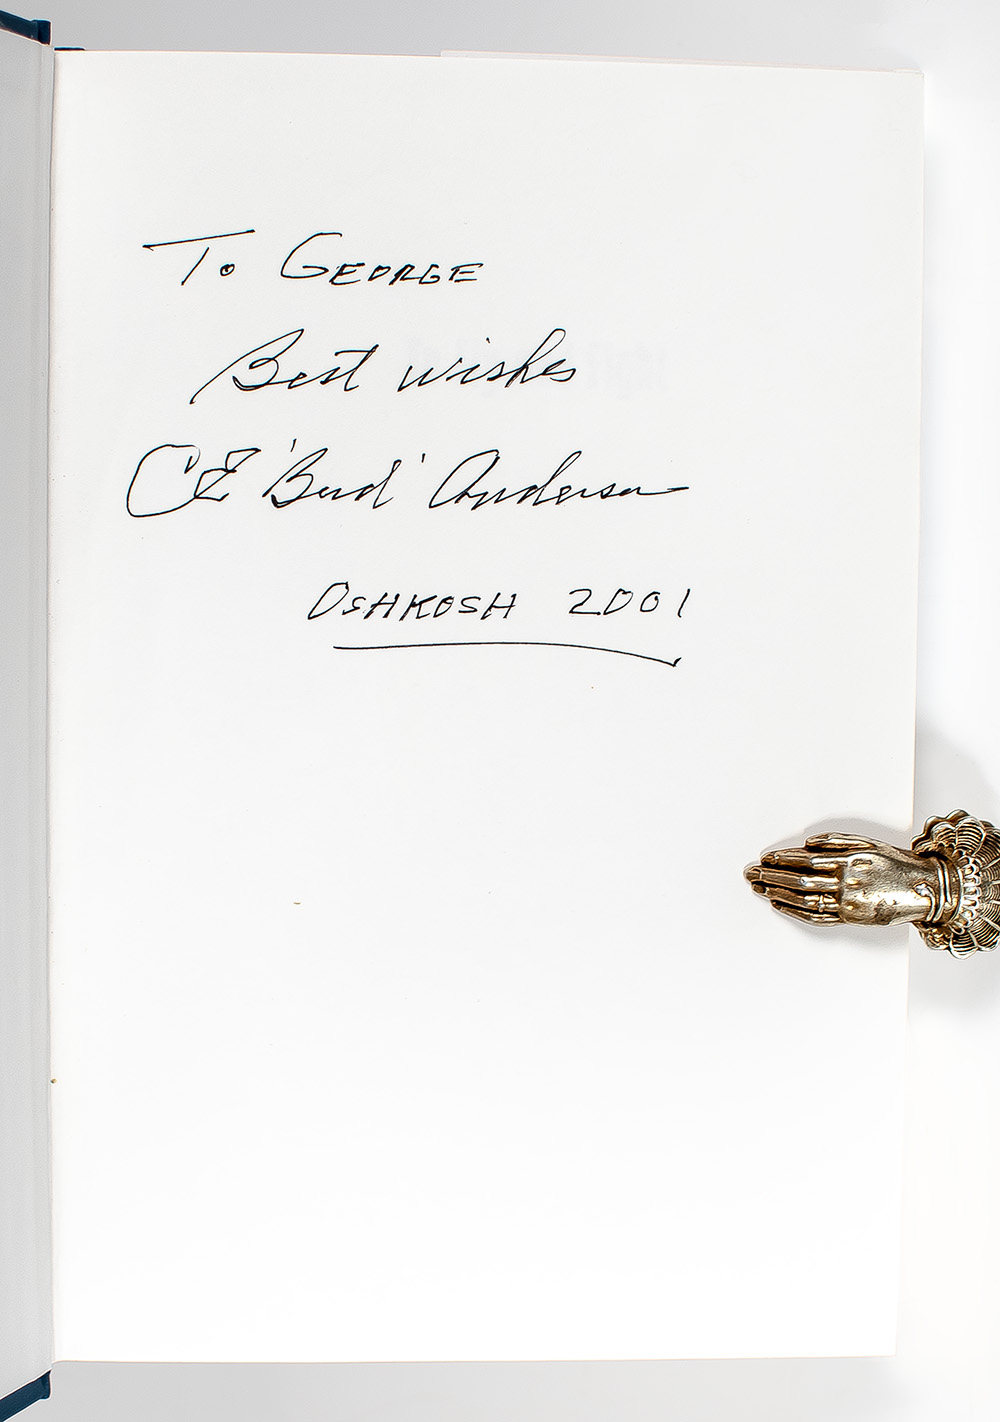 To GEORGE
Best wishes
CE 'Bud' Anderson
OSHKOSH 2001